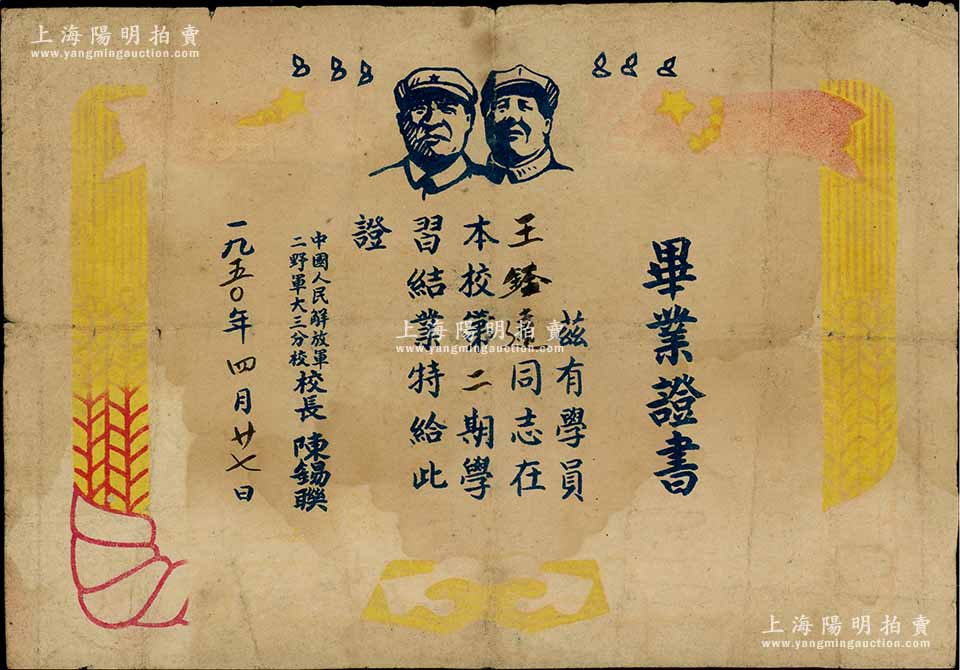 上海陽明拍賣
www.yangmingauction.com
畢業證書
茲有學員
王 同志在
本校第二期學
習結業特給此
證
中國人民解放軍
二野軍大三分校
校長 陳錫聯
一九五〇年四月廿七日
上海陽明拍賣
www.yangmingauction.com
上海陽明拍賣
www.yangmingauction.com